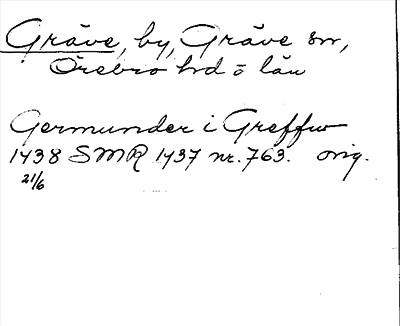 Gräve, by, Gräve sn,
Örebro hrd o län
Germunder i Greffw
1438 SMR 1437 nr. 763. orig.
21/6